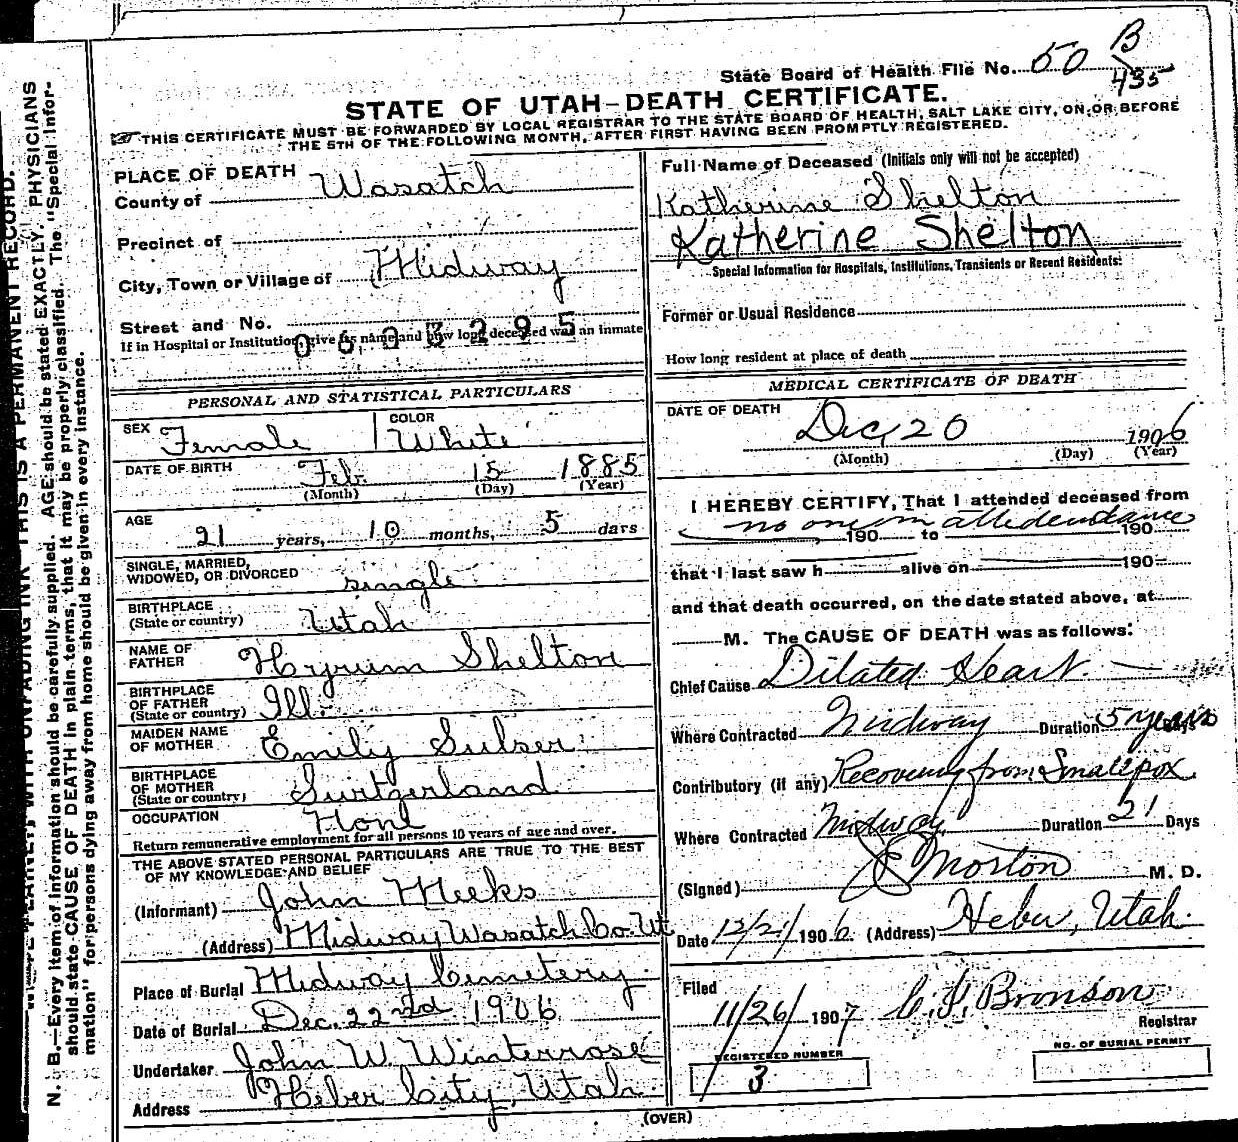 State Board of Health File No. 50 B
435
STATE OF UTAH-DEATH CERTIFICATE.
THIS CERTIFICATE MUST BE FORWARDED BY LOCAL REGISTRAR TO THE STATE BOARD OF HEALTH, SALT LAKE CITY, ON OR BEFORE
THE 5TH OF THE FOLLOWING MONTH, AFTER FIRST HAVING BEEN PROMPTLY REGISTERED.
PLACE OF DEATH
County of Wasatch
Precinct of
City, Town or Village of Midway
Street and No.
If in Hospital or Institution, give its name and how long deceased was an inmate
0603295
PERSONAL AND STATISTICAL PARTICULARS
SEX Female
COLOR White
DATE OF BIRTH Feb. 15 1885
(Month) (Day) (Year)
AGE
21 years, 10 months, 5 days
SINGLE, MARRIED,
WIDOWED, OR DIVORCED single
BIRTHPLACE
(State or country) Utah
NAME OF
FATHER Hyrum Shelton
BIRTHPLACE
OF FATHER
(State or country) Ill.
MAIDEN NAME
OF MOTHER Emily Sulser
BIRTHPLACE
OF MOTHER
(State or country) Switzerland
OCCUPATION
Return remunerative employment for all persons 10 years of age and over.
THE ABOVE STATED PERSONAL PARTICULARS ARE TRUE TO THE BEST
OF MY KNOWLEDGE AND BELIEF
(Informant) John Meeks
(Address) Midway Wasatch Co. Ut
Place of Burial Midway Cemetery
Date of Burial Dec. 22nd 1906
Undertaker John W. Winterrose
Address Heber City, Utah
Full Name of Deceased (Initials only will not be accepted)
Katherine Shelton
Katherine Shelton
Special Information for Hospitals, Institutions, Transients or Recent Residents:
Former or Usual Residence
How long resident at place of death
MEDICAL CERTIFICATE OF DEATH
DATE OF DEATH
Dec, 20 1906
(Month) (Day) (Year)
I HEREBY CERTIFY, That I attended deceased from
no one in attendance
190 to 190
that I last saw h alive on 190
and that death occurred, on the date stated above, at
M. The CAUSE OF DEATH was as follows:
Chief Cause Dilated Heart
Where Contracted Midway Duration 5 years Days
Contributory (if any) Recovering from Smallpox
Where Contracted Midway Duration 21 Days
(Signed) Morton M. D.
Date 12/21/1906 (Address) Heber, Utah.
Filed
11/26/1907 Bronson
Registrar
REGISTERED NUMBER
3
NO. OF BURIAL PERMIT
(OVER)
THIS IS A PERMANENT RECORD.
N. B.—Every item of information should be carefully supplied. AGE should be stated EXACTLY. PHYSICIANS
should state CAUSE OF DEATH in plain terms, that it may be properly classified. The "Special Infor-
mation" for persons dying away from home should be given in every instance.